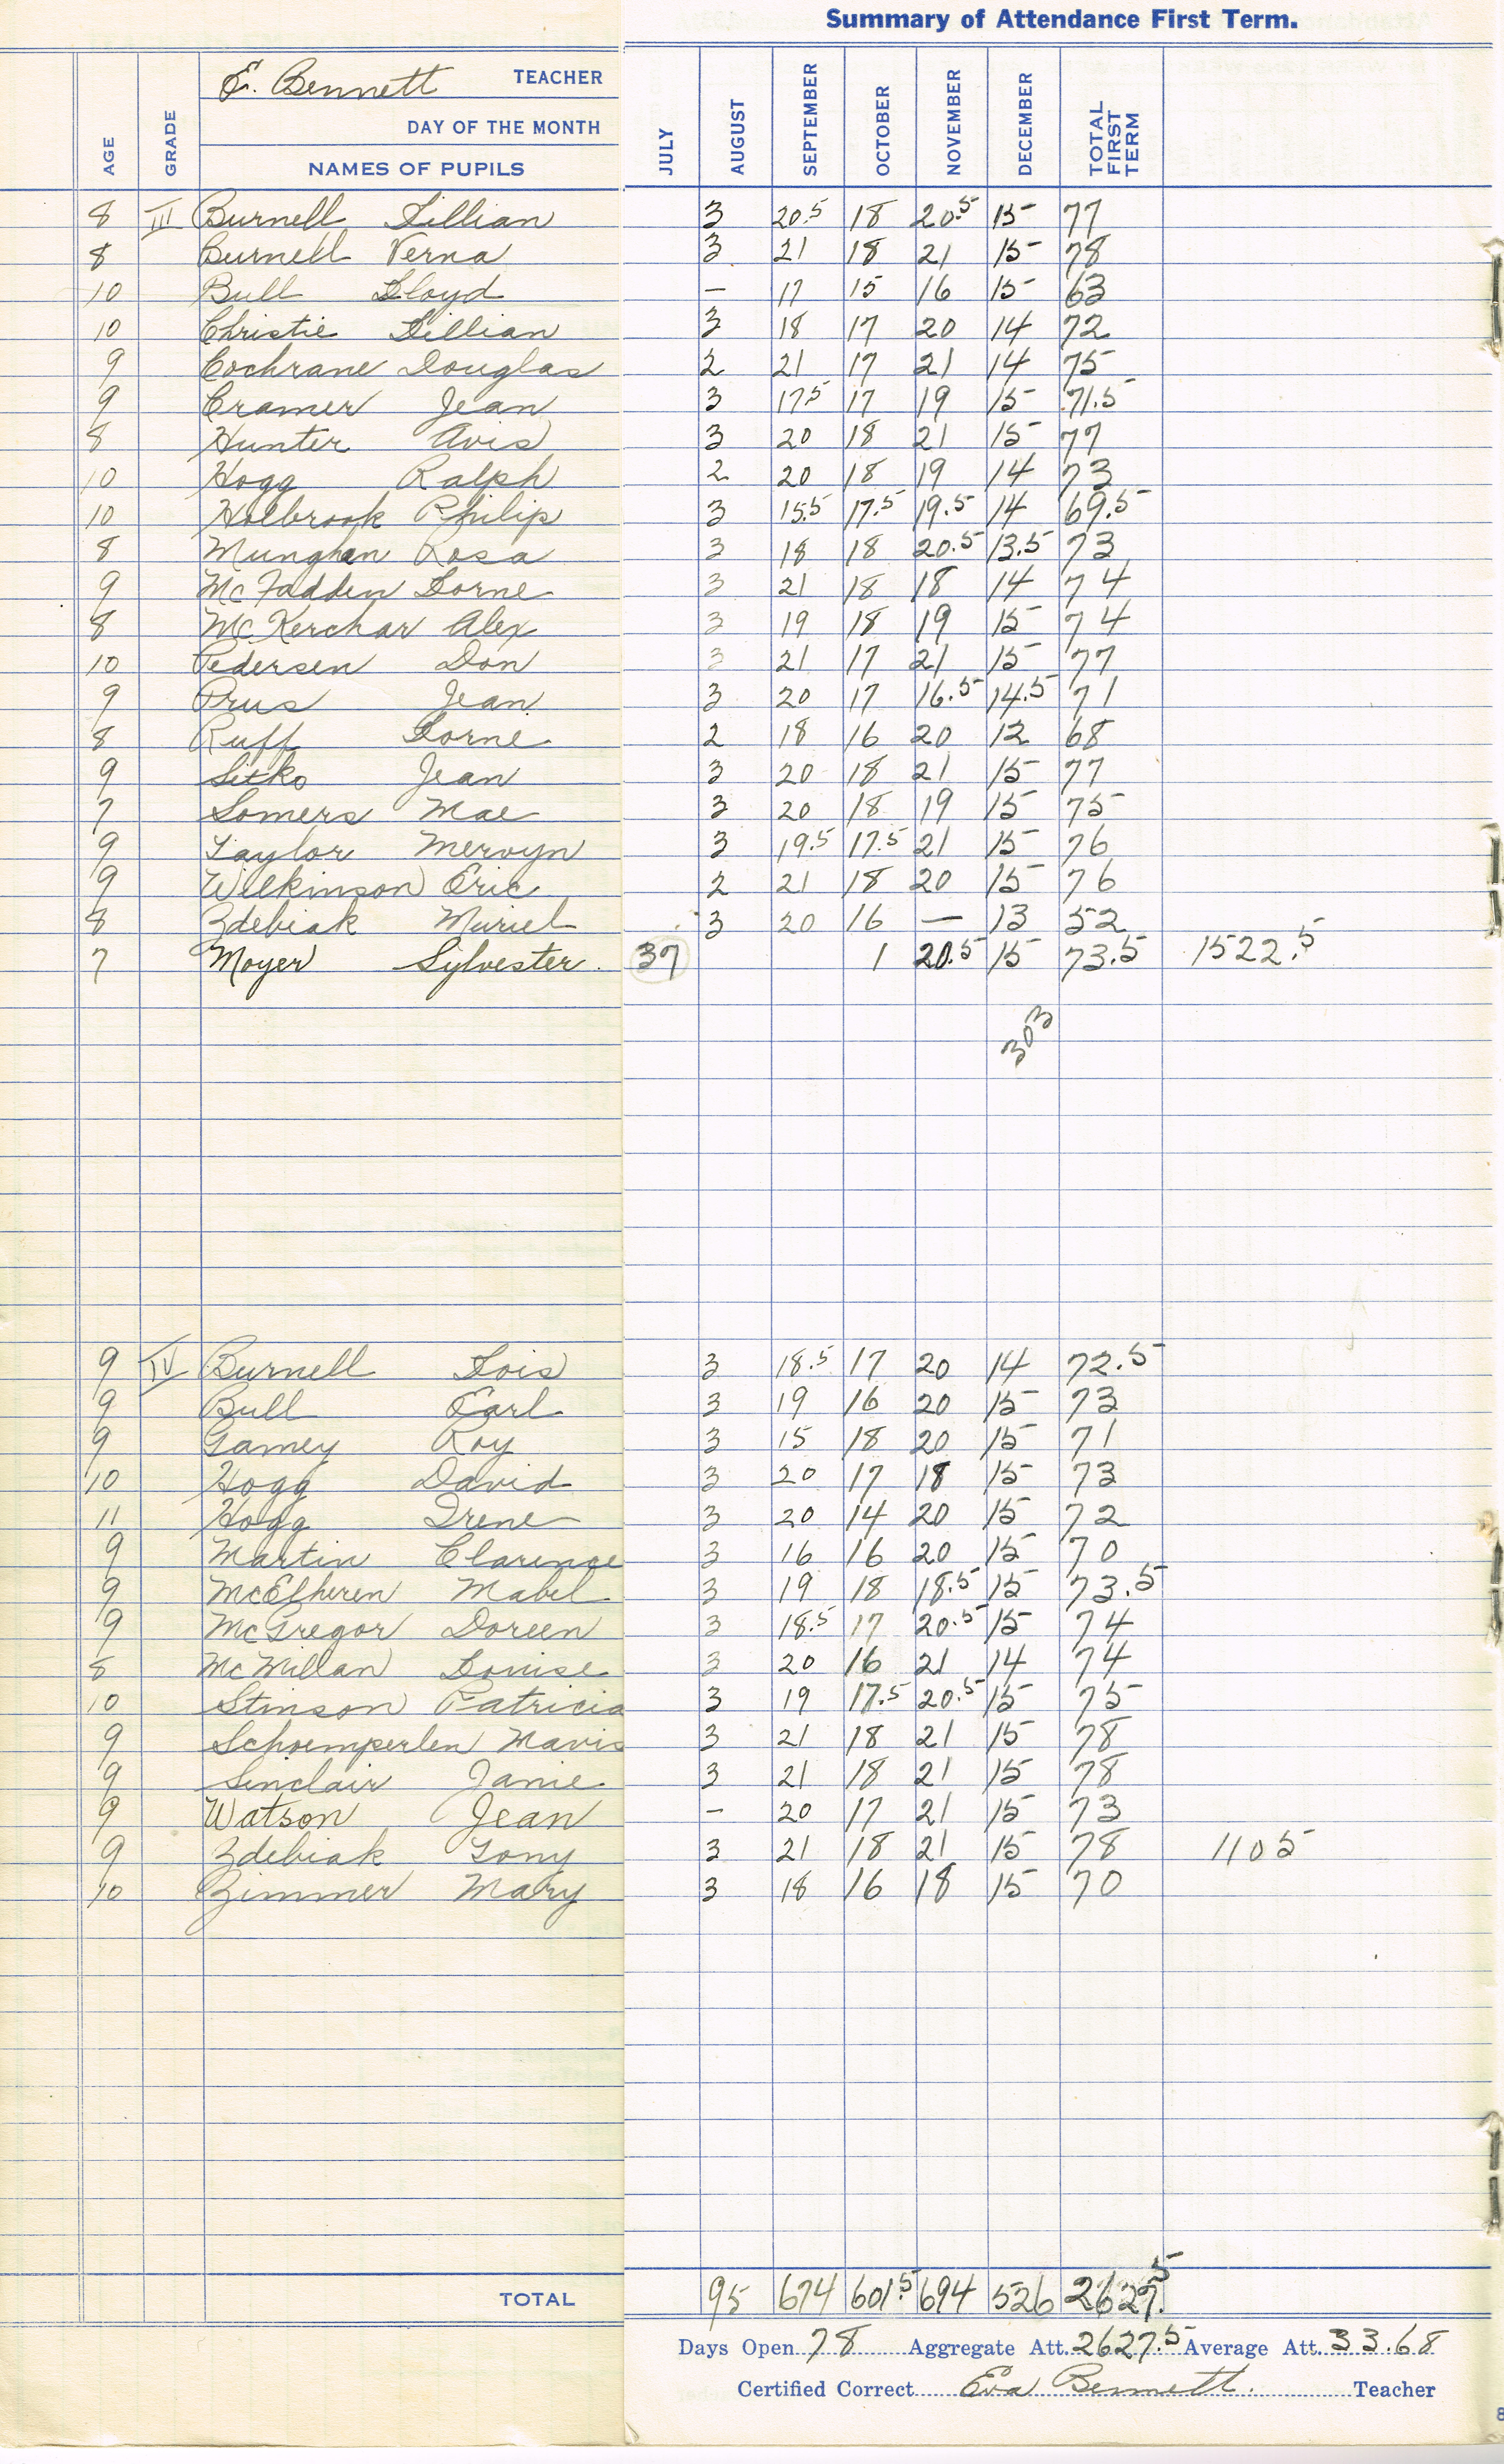 Summary of Attendance First Term.
E. Bennett TEACHER
DAY OF THE MONTH
AGE GRADE NAMES OF PUPILS JULY AUGUST SEPTEMBER OCTOBER NOVEMBER DECEMBER TOTAL FIRST TERM
8 III Burnell Lillian 3 20.5 18 20.5 15 77
8 Burnell Verna 3 21 18 21 15 78
10 Bull Lloyd — 17 15 16 15 63
10 Christie Lillian 3 18 17 20 14 72
9 Cochrane Douglas 2 21 17 21 14 75
9 Cramer Jean 3 17.5 17 19 15 71.5
8 Hunter Avis 3 20 18 21 15 77
10 Hogg Ralph 2 20 18 19 14 73
10 Holbrook Philip 3 15.5 17.5 19.5 14 69.5
8 Munghan Rosa 3 18 18 20.5 13.5 73
9 McFadden Lorne 3 21 18 18 14 74
8 McKerchar Alex 3 19 18 19 15 74
10 Pedersen Don 3 21 17 21 15 77
9 Prus Jean 3 20 17 16.5 14.5 71
8 Ruff Lorne 2 18 16 20 12 68
9 Sitko Jean 3 20 18 21 15 77
7 Somers Mae 3 20 18 19 15 75
9 Taylor Mervyn 3 19.5 17.5 21 15 76
9 Wilkinson Eric 2 21 18 20 15 76
8 Zdebiak Muriel 3 20 16 — 13 52
7 Moyer Sylvester. 37 1 20.5 15 73.5 1522.5
303
9 IV Burnell Lois 3 18.5 17 20 14 72.5
9 Bull Earl 3 19 16 20 15 73
9 Gamey Roy 3 15 18 20 15 71
10 Hogg David 3 20 17 18 15 73
11 Hogg Irene 3 20 14 20 15 72
9 Martin Clarence 3 16 16 20 15 70
9 McElheren Mabel 3 19 18 18.5 15 73.5
9 McGregor Doreen 3 18.5 17 20.5 15 74
8 McMillan Louise 3 20 16 21 14 74
10 Stinson Patricia 3 19 17.5 20.5 15 75
9 Schoemperlen Mavis 3 21 18 21 15 78
9 Sinclair Janie 3 21 18 21 15 78
9 Watson Jean — 20 17 21 15 73
9 Zdebiak Tony 3 21 18 21 15 78 1105
10 Zimmer Mary 3 18 16 18 15 70
TOTAL 95 674 601.5 694 526 2627.5
Days Open 78 Aggregate Att. 2627.5 Average Att. 33.68
Certified Correct Eva Bennett. Teacher
8